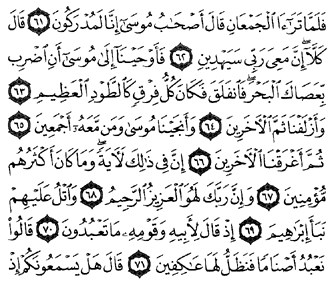 فَلَمَّا تَرَٰٓءَا ٱلْجَمْعَانِ قَالَ أَصْحَٰبُ مُوسَىٰٓ إِنَّا لَمُدْرَكُونَ ٦١ قَالَ
كَلَّآ ۖ إِنَّ مَعِىَ رَبِّى سَيَهْدِينِ ٦٢ فَأَوْحَيْنَآ إِلَىٰ مُوسَىٰٓ أَنِ ٱضْرِب
بِّعَصَاكَ ٱلْبَحْرَ ۖ فَٱنفَلَقَ فَكَانَ كُلُّ فِرْقٍ كَٱلطَّوْدِ ٱلْعَظِيمِ ٦٣
وَأَزْلَفْنَا ثَمَّ ٱلْءَاخَرِينَ ٦٤ وَأَنجَيْنَا مُوسَىٰ وَمَن مَّعَهُۥٓ أَجْمَعِينَ ٦٥
ثُمَّ أَغْرَقْنَا ٱلْءَاخَرِينَ ٦٦ إِنَّ فِى ذَٰلِكَ لَءَايَةً ۖ وَمَا كَانَ أَكْثَرُهُم
مُّؤْمِنِينَ ٦٧ وَإِنَّ رَبَّكَ لَهُوَ ٱلْعَزِيزُ ٱلرَّحِيمُ ٦٨ وَٱتْلُ عَلَيْهِمْ
نَبَأَ إِبْرَٰهِيمَ ٦٩ إِذْ قَالَ لِأَبِيهِ وَقَوْمِهِۦ مَا تَعْبُدُونَ ٧٠ قَالُوا۟
نَعْبُدُ أَصْنَامًا فَنَظَلُّ لَهَا عَٰكِفِينَ ٧١ قَالَ هَلْ يَسْمَعُونَكُمْ إِذْ